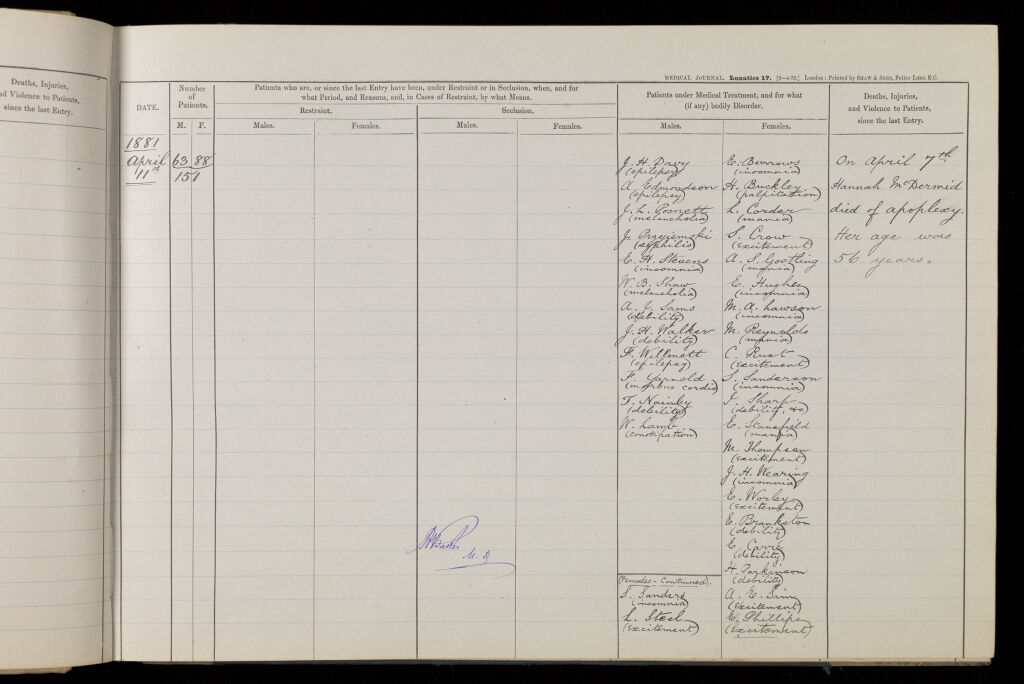 Deaths, Injuries,
and Violence to Patients,
since the last Entry.
MEDICAL JOURNAL. Lunatics 17. [2—4-79.] London: Printed by SHAW & SONS, Fetter Lane, E.C.
DATE.
Number
of
Patients.
M. F.
Patients who are, or since the last Entry have been, under Restraint or in Seclusion, when, and for
what Period, and Reasons, and, in Cases of Restraint, by what Means.
Restraint.
Seclusion.
Males.
Females.
Males.
Females.
Patients under Medical Treatment, and for what
(if any) bodily Disorder.
Males.
Females.
Deaths, Injuries,
and Violence to Patients,
since the last Entry.
1881
April
11th
63 88
151
J. H. Davy
(epilepsy)
A. Edmondson
(epilepsy)
J. L.
(melancholia)
J.
(syphilis)
E. H. Stevens
(insomnia)
W. B. Shaw
(melancholia)
A. J. Sams
(debility)
J. H. Walker
(debility)
F. Willmott
(epilepsy)
F. Yarnold
(morbus cordis)
T. Nainby
(debility)
W. Lamb
(constipation)
(Females - Continued).
S. Sanders
(insomnia)
L. Steel
(excitement)
E. Burrows
(insomnia)
H. Buckley
(palpitation)
L. Corder
(mania)
S. Crow
(excitement)
A. S. Gostling
(mania)
E. Hughes
(insomnia)
M. A. Lawson
(insomnia)
M. Reynolds
(mania)
C. Rust
(excitement)
S. Sanderson
(insomnia)
J. Sharp
(debility, &c)
E. Stansfield
(mania)
M. Thompson
(excitement)
J. H. Wearing
(insomnia)
E. Worley
(excitement)
E. Brankston
(debility)
E. Carrie
(debility)
H. Parkinson
(debility)
A. E. Sim
(excitement)
E. Phillips
(Excitement)
On April 7th
Hannah McDermid
died of apoplexy.
Her age was
56 years.
Baker
M.D.